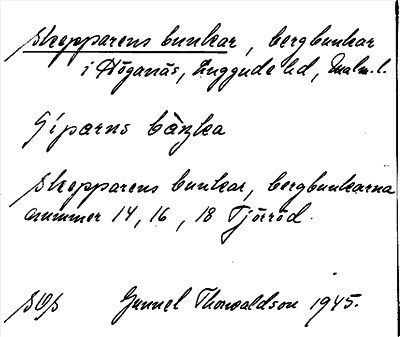 Skepparens bunkar, bergbunkar
i Höganäs, Luggude hd, Malm. l.
Sípaʀns bàŋka
Skepparens bunkar, bergbunkarna
nummer 14, 16, 18 Tjörröd.
SOS Gunnel Thorvaldson 1945.